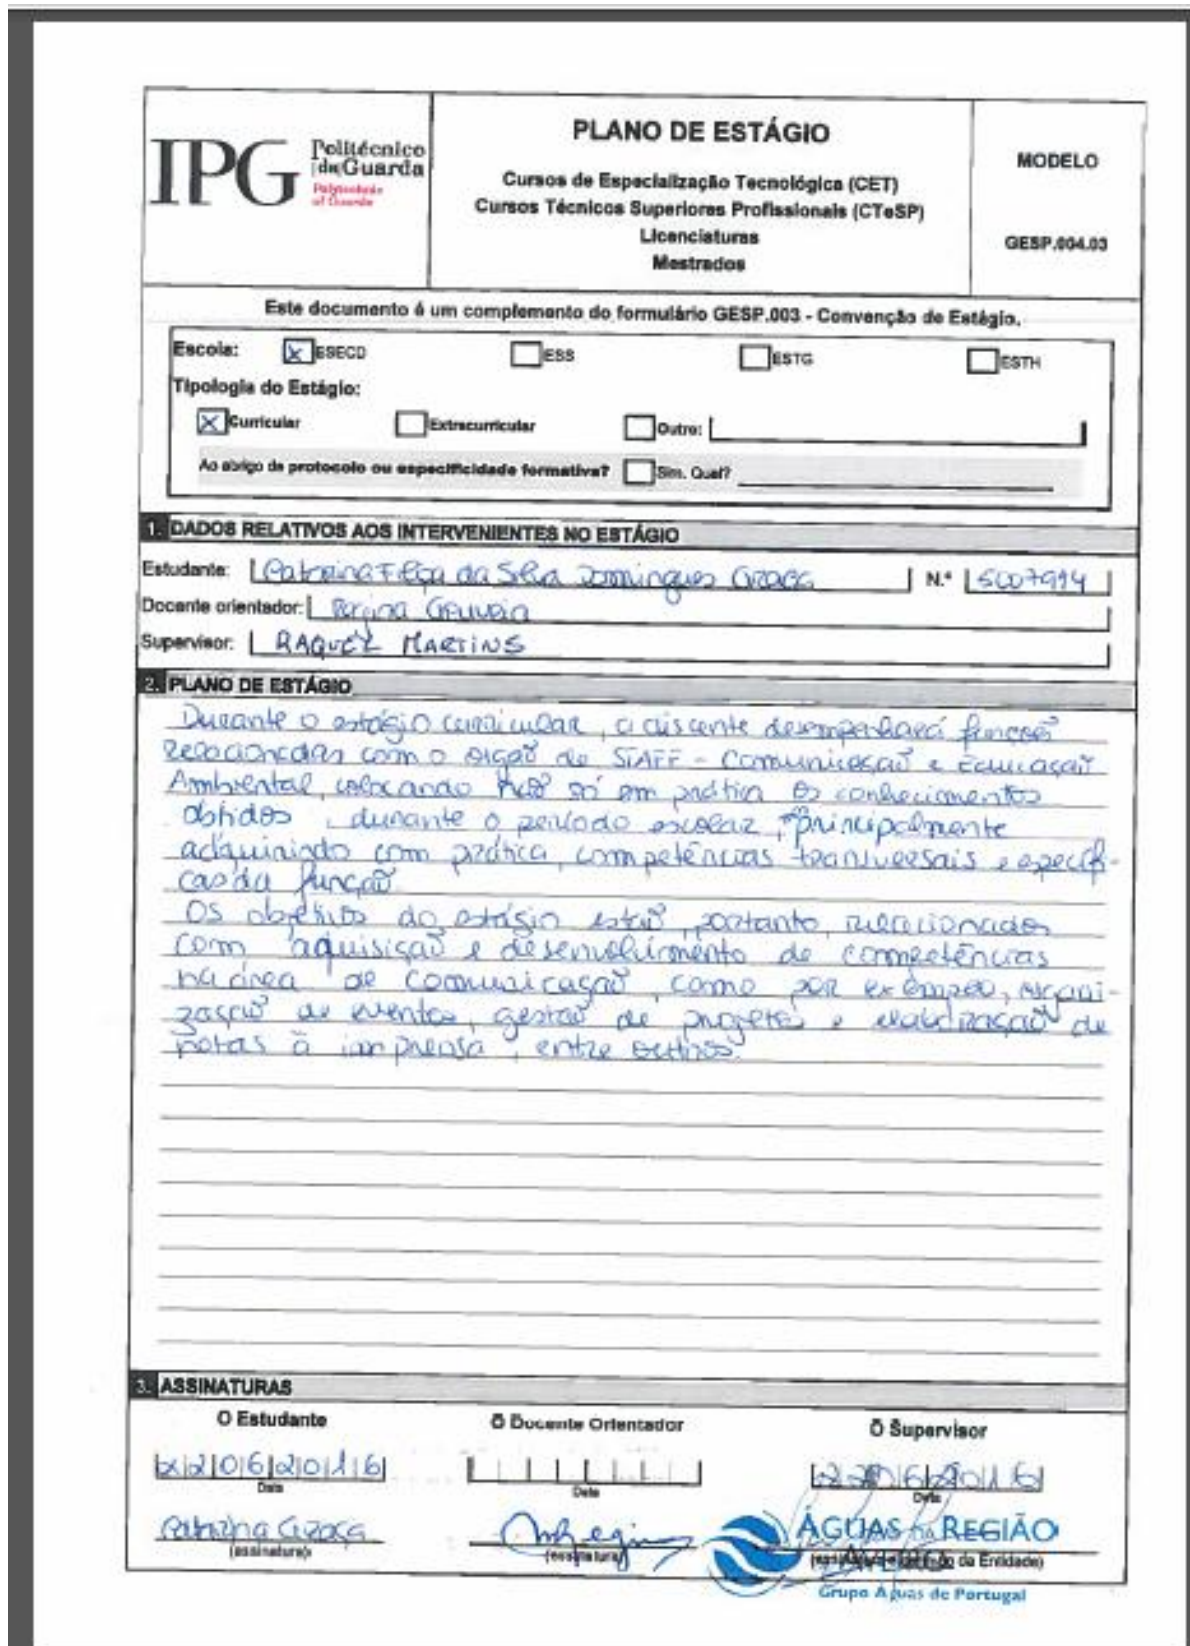 IPG Politécnico da Guarda
Polytechnic of Guarda
PLANO DE ESTÁGIO
Cursos de Especialização Tecnológica (CET)
Cursos Técnicos Superiores Profissionais (CTeSP)
Licenciaturas
Mestrados
MODELO
GESP.004.03
Este documento é um complemento do formulário GESP.003 - Convenção de Estágio.
Escola: ESECD ESS ESTG ESTH
Tipologia do Estágio:
Curricular Extracurricular Outro:
Ao abrigo de protocolo ou especificidade formativa? Sim. Qual?
1. DADOS RELATIVOS AOS INTERVENIENTES NO ESTÁGIO
Estudante: da Silva Domingues N.º 5007994
Docente orientador: Regina Gouveia
Supervisor: RAQUEL MARTINS
2. PLANO DE ESTÁGIO
Durante o estágio curricular, a discente desempenhará funções
relacionadas com o orgão de STAFF - Comunicação e Educação
Ambiental, colocando não só em prática os conhecimentos
obtidos, durante o período escolar, principalmente
adquirindo com prática, competências transversais e especifi-
cas da função.
Os objetivos do estágio estão, portanto, relacionados
com aquisição e desenvolvimento de competências
na área de comunicação, como por exemplo, organi-
zação de eventos, gestão de projetos e elaboração de
notas à imprensa, entre outros.
3. ASSINATURAS
O Estudante O Docente Orientador O Supervisor
22062016 22062016
Data Data Data
(assinatura) (assinatura) da Entidade)
ÁGUAS DA REGIÃO
Grupo Águas de Portugal